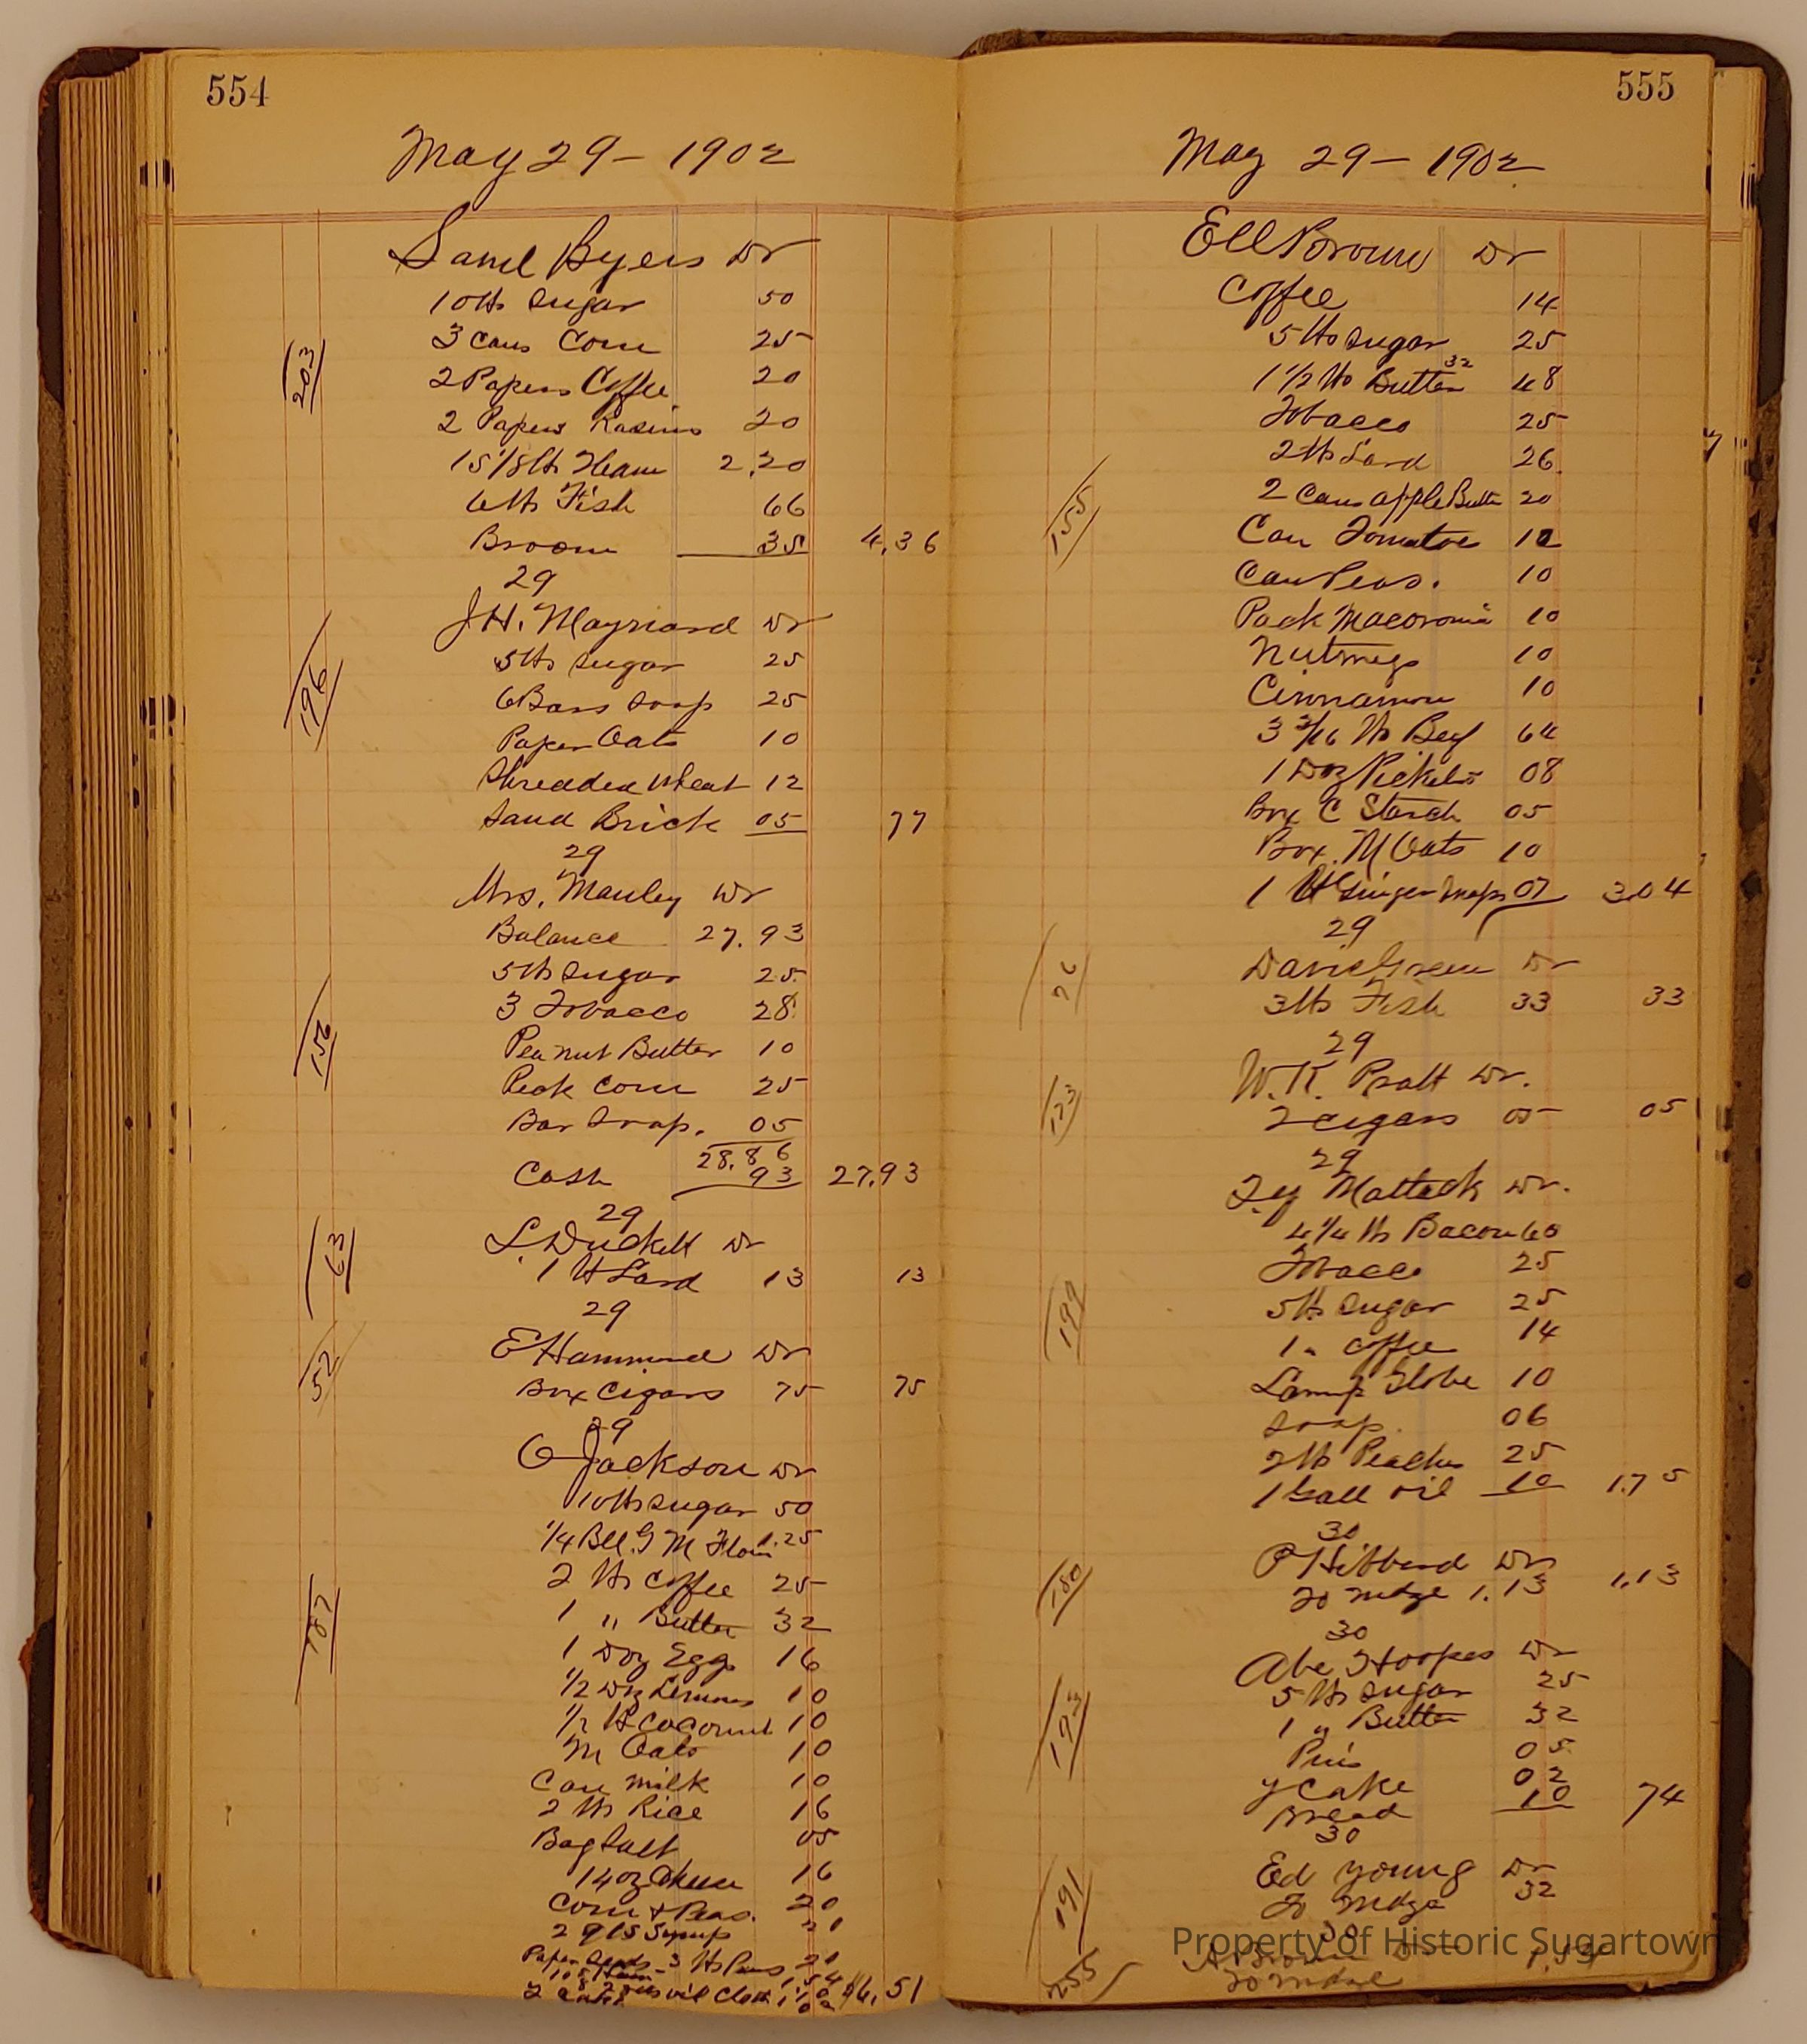 554
May 29 - 1902
Saml Byers Dr
10 lbs Sugar 50
3 Cans Corn 25
203
2 Papers Coffee 20
2 Papers Rasins 20
15 1/8 lb Ham 2.20
6 lbs Fish 66
Broom 35 4.36
29
J H. Maynard Dr
5 lbs Sugar 25
196
6 Bars Soap 25
Paper Oats 10
Shredded Wheat 12
Sand Brick 05 77
29
Mrs. Manley Dr
Balance 27.93
5 lb Sugar 25
3 Tobacco 28
156
Peanut Butter 10
Peck Corn 25
Bar Soap. 05
28.86
Cash 93 27.93
29
63
L. Duckett Dr
1 lb Lard 13 13
29
E Hammond Dr
52
Box Cigars 75 75
29
Jackson Dr
10 lbs Sugar 50
1/4 Bll. G M Flour 1.25
2 lbs Coffee 25
187
1 " Butter 32
1 Doz Eggs 16
1/2 Doz Lemons 10
1/2 lb Cocoanut 10
M Oats 10
Can Milk 10
2 lbs Rice 16
Bag Salt 05
14 oz Cheese 16
Corn & Peas. 20
2 qts Syrup
6.51
555
May 29 - 1902
Ell Brown Dr
Coffee 14
5 lbs Sugar 25
1 1/2 lb Butter 32 48
Tobacco 25
2 lb Lard 26
2 Cans apple Butter 20
155
Can Tomatoes 12
Can Peas. 10
Pack Macoronia 10
Nutmegs 10
Cinnamon 10
3 3/16 lb Beef 64
1 Doz Pickels 08
Box C Starch 05
Box. M Oats 10
1 lb Ginger Snaps 07 3.04
29
26
David Green Dr
3 lbs Fish 33 33
29
173
W. K. Pratt Dr.
2 Cigars 05 05
29
Mattack Dr.
4 1/4 lb Bacon 60
Tobacco 25
199
5 lb Sugar 25
1 " Coffee 14
Lamp Globe 10
Soap. 06
2 lb Peaches 25
1 Gall oil 10 1.75
30
180
P Hibberd Dr
To Mdze 1.13 1.13
30
Abe Hoopes Dr
5 lbs Sugar 25
193
1 " Butter 32
Pins 05
y Cake 02
Bread 10 74
30
191
Ed Young Dr
To Mdze 32
30
255
A. Brown Dr
To Mdze
Property of Historic Sugartown